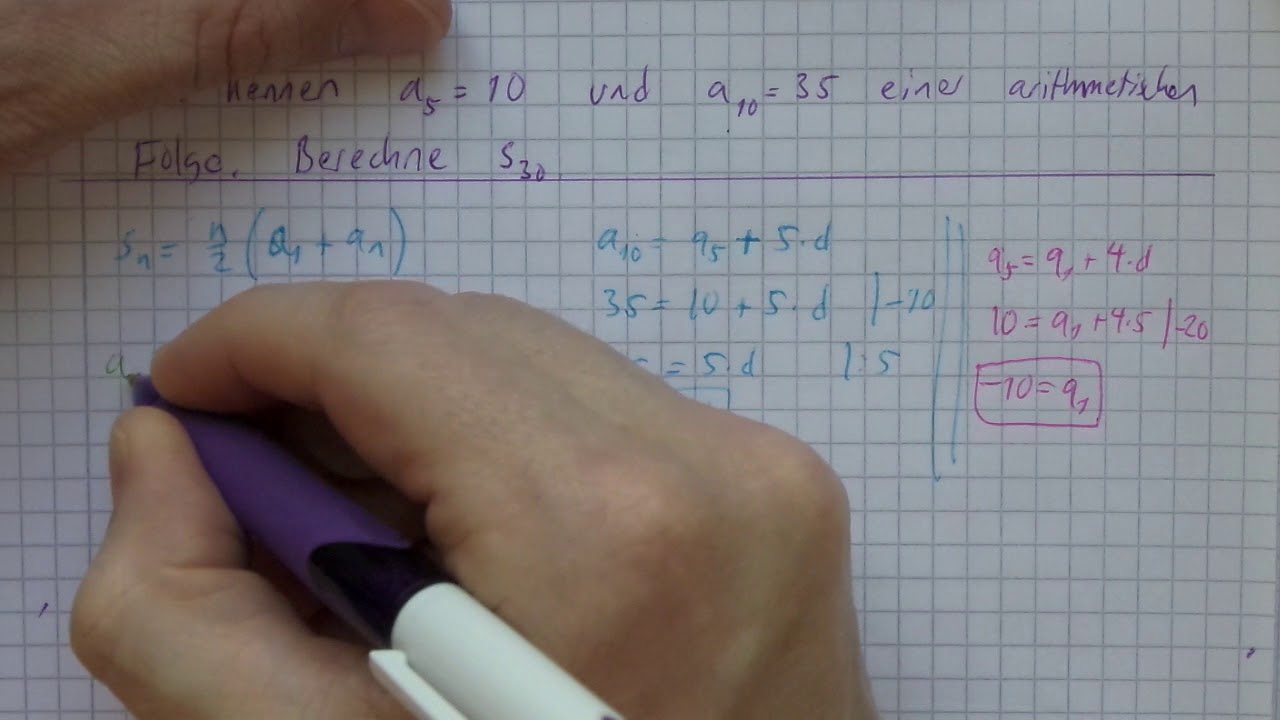 kennen a₅ = 10 und a₁₀ = 35 einer arithmetischen
Folge. Berechne s₃₀
sₙ = n/2 (a₁ + aₙ)
a₁₀ = a₅ + 5·d
35 = 10 + 5·d |-10
= 5·d |:5
a₅ = a₁ + 4·d
10 = a₁ + 4·5 |-20
-10 = a₁
a